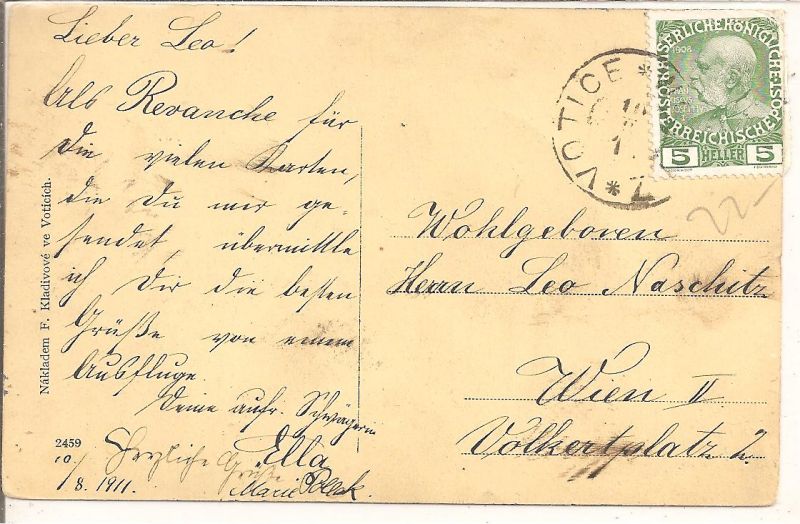 Lieber Leo!
Als Revanche für
die vielen Karten,
die Du mir ge-
sendet, übermittle
ich Dir die besten
Grüße von einem
Ausfluge.
Deine aufr. Schwägerin
Ella
Herzliche Grüße
Marie Pollak.
10/
8. 1911.
2459
Nákladem F. Kladivové ve Voticích.
VOTICE
1908
KAISERLICHE KÖNIGLICHE
ÖSTERREICHISCHE
5 HELLER 5
22-
Wohlgeboren
Herrn Leo Naschitz
Wien II
Volkertplatz 2.